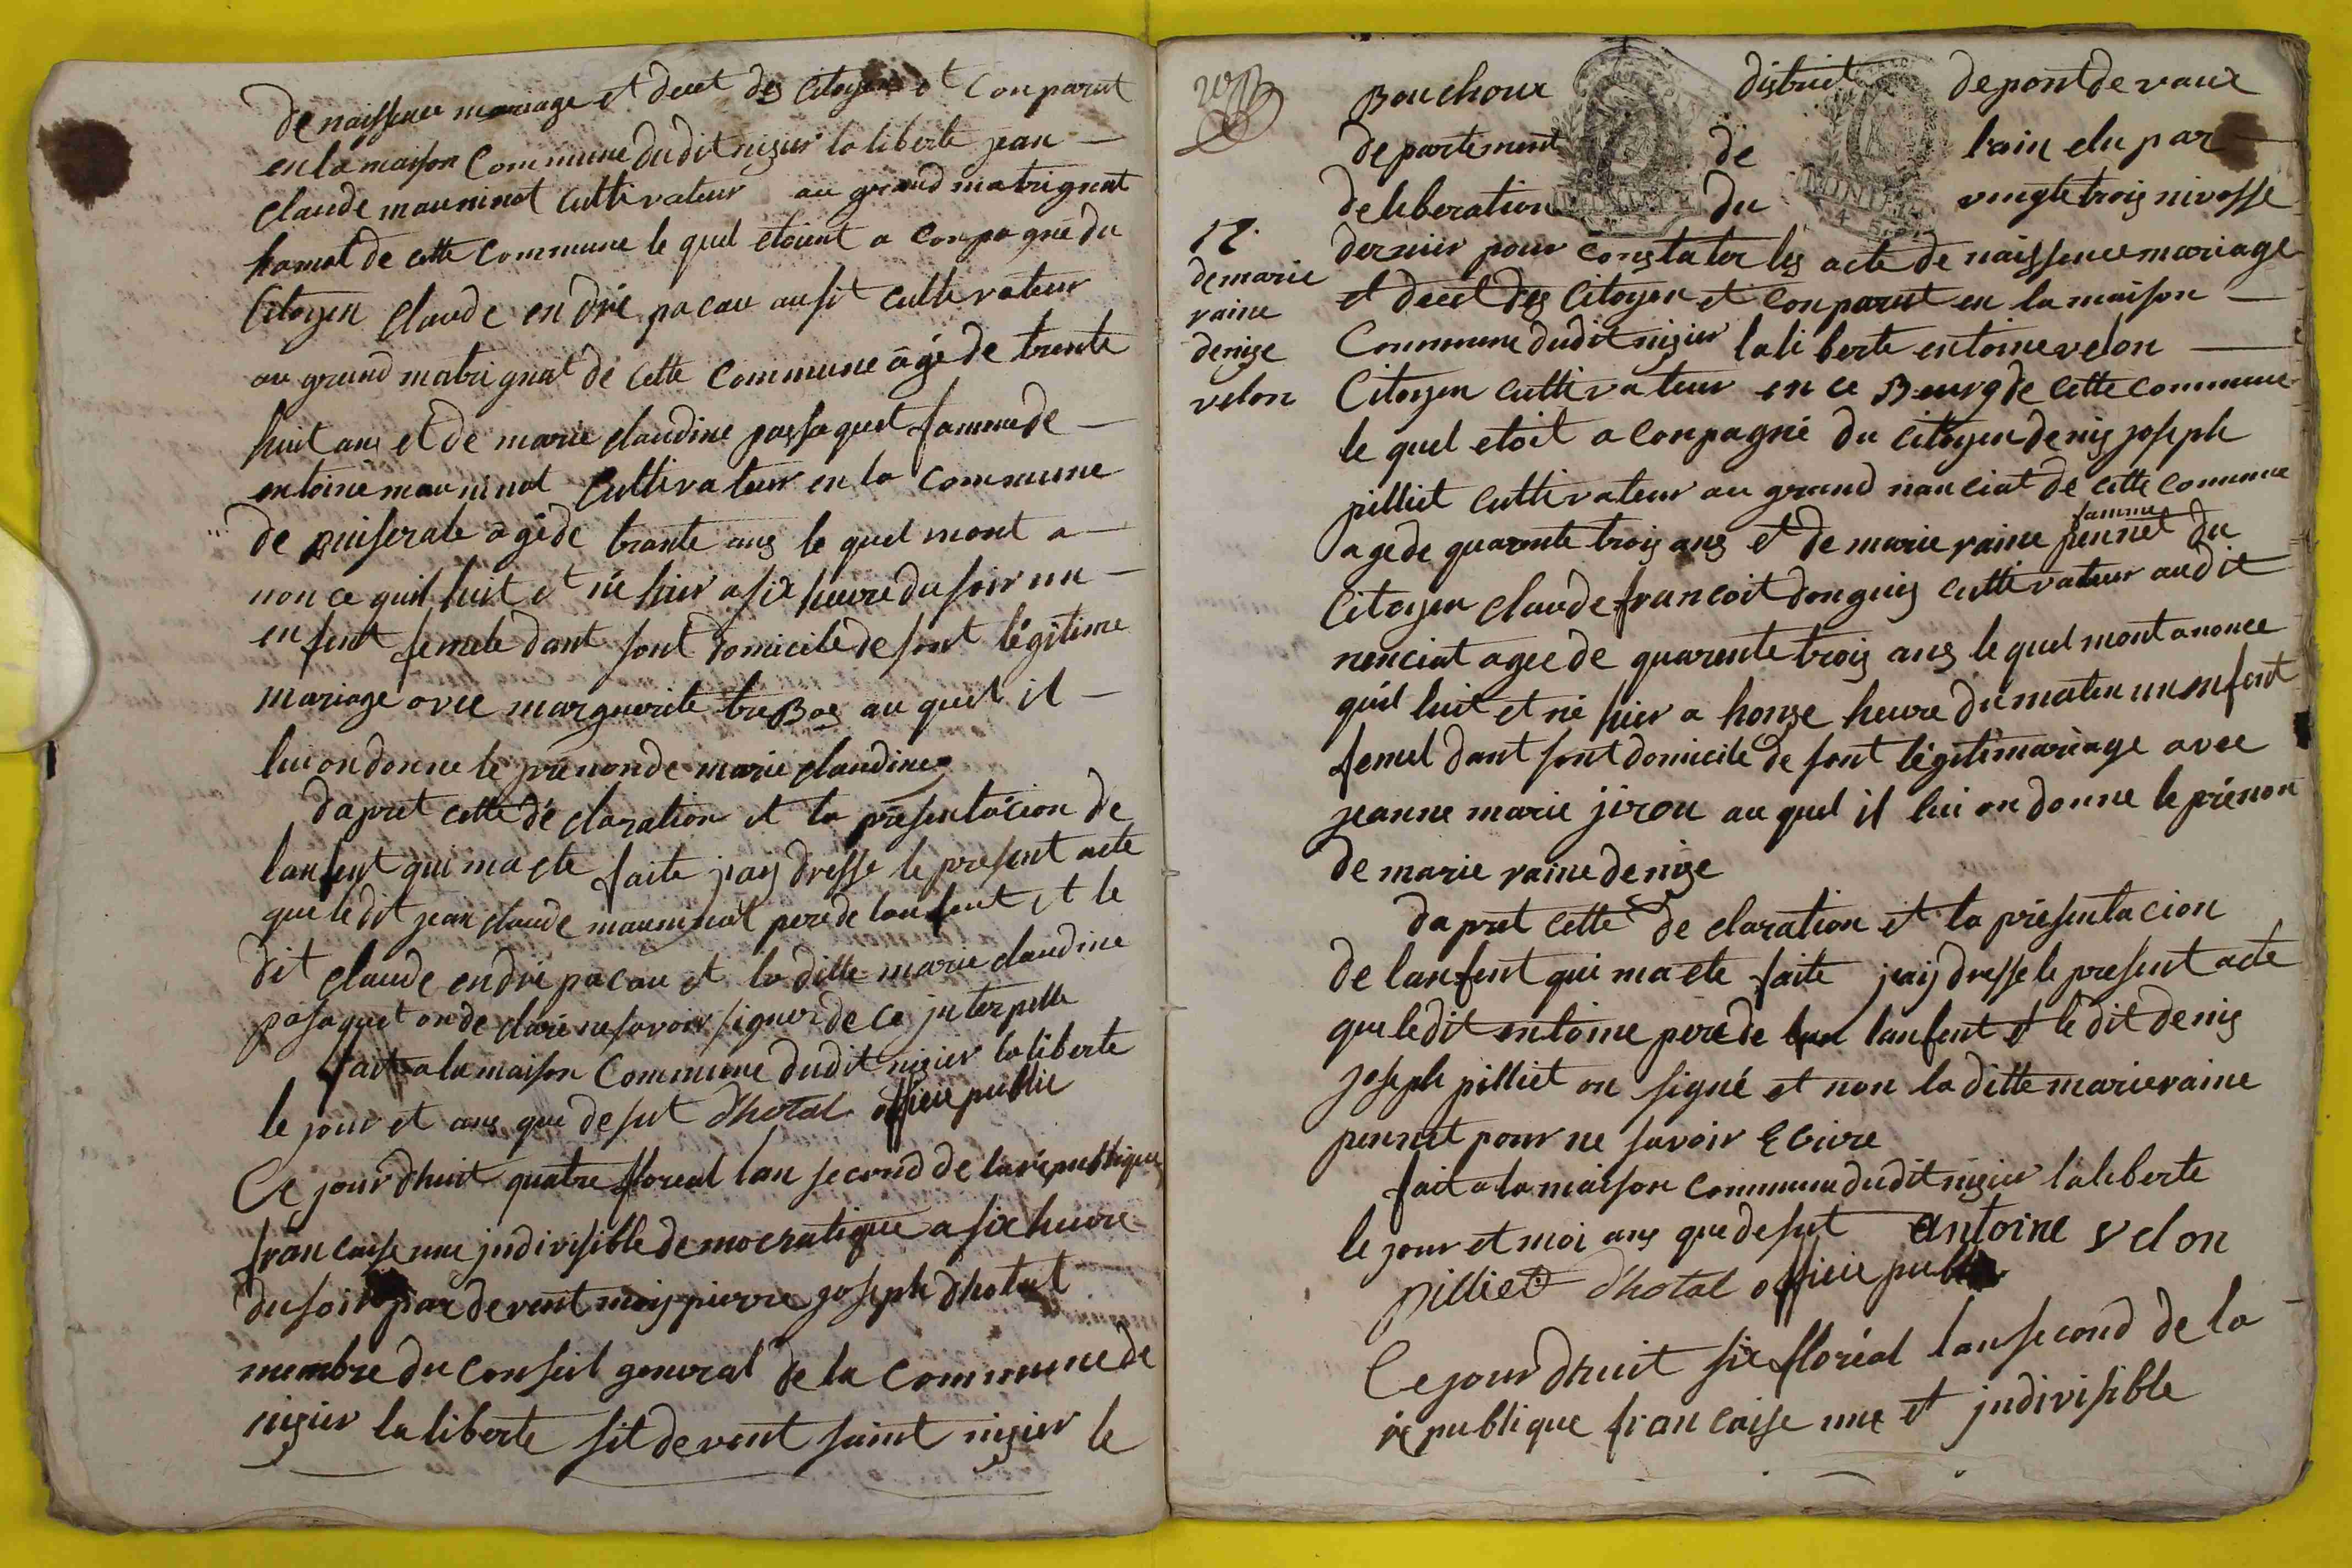 de naissence mariage et decet des Citoyen et Conparut
en la maison Commune dudit nizier la liberte jean
claude mauninot cultivateur au grand matrignat
hamot de cette Commune le quel etoient a conpagné du
Citoyen claude endré pacau ausit cultivateur
au grand matrignat de cette commune âgé de trente
huit ans et de marie claudine passaquet famme de
entoine mauninot Cultivateur en la Commune
de âgé de trante ans le quel mont a
nonce quil luit et né hier a six heure du soir un
enfent femele dant sont domicile de sont légitime
mariage avec marguerite au quel il
lui on donne le prénon de marie claudine
dapret cette déclaration et la présentacion de
lanfent qui ma ete faite jay dresse le present acte
que ledit jean claude mauninot pere de lanfent et le
dit claude endré pacau et la ditte marie claudine
pasaquet on declaré ne savoir signer de ce interpelle
fait a la maison Commune dudit nizier la liberte
le jour et ans que desut dhotal officie public
Ce jour dhuit quatre floreal lan second de la republique
francaise une jndivisible democratique a six heure
du soir par devent moy pierre joseph dhotal
membre du conseil general de la commune de
nizier la liberte sit devent saint nizier le
12.
de marie
raine
denise
velon
Bouchoux district de pont de vaux
departement de lain elu par
deliberation du vingte trois nivosse
dernier pour constater les acte de naissence mariage
et decet des Citoyen et Conparut en la maison
Commune dudit nizier la liberte entoine velon
Citoyen cultivateur en ce Bourg de cette commune
le quel etoit a conpagné du citoyen denis joseph
pilliet cultivateur au grand nanciat de cette commune
famme
age de quarente trois ans et de marie raine pennet du
Citoyen claude francoit donguis cultivateur audit
nenciat agee de quarente trois ans le quel mont anonce
quil luit et né hier a honze heure du maten un enfent
femel dant sont domicile de sont légiti mariage avec
jeanne marie jirou au quel il lui on donne le prénon
de marie raine denise
dapret cette declaration et la présentacion
de lanfent qui ma ete faite jay dresse le present acte
que ledit entoine pere de lanfent et le dit denis
joseph pilliet on signé et non la ditte marie raine
pennet pour ne savoir Ecrire
fait a la maison commune dudit nizier la liberte
le jour et moi ans que desut antoine velon
pilliet dhotal officie public
Ce jour dhuit six floréal lan second de la
république francaise une et jndivisible